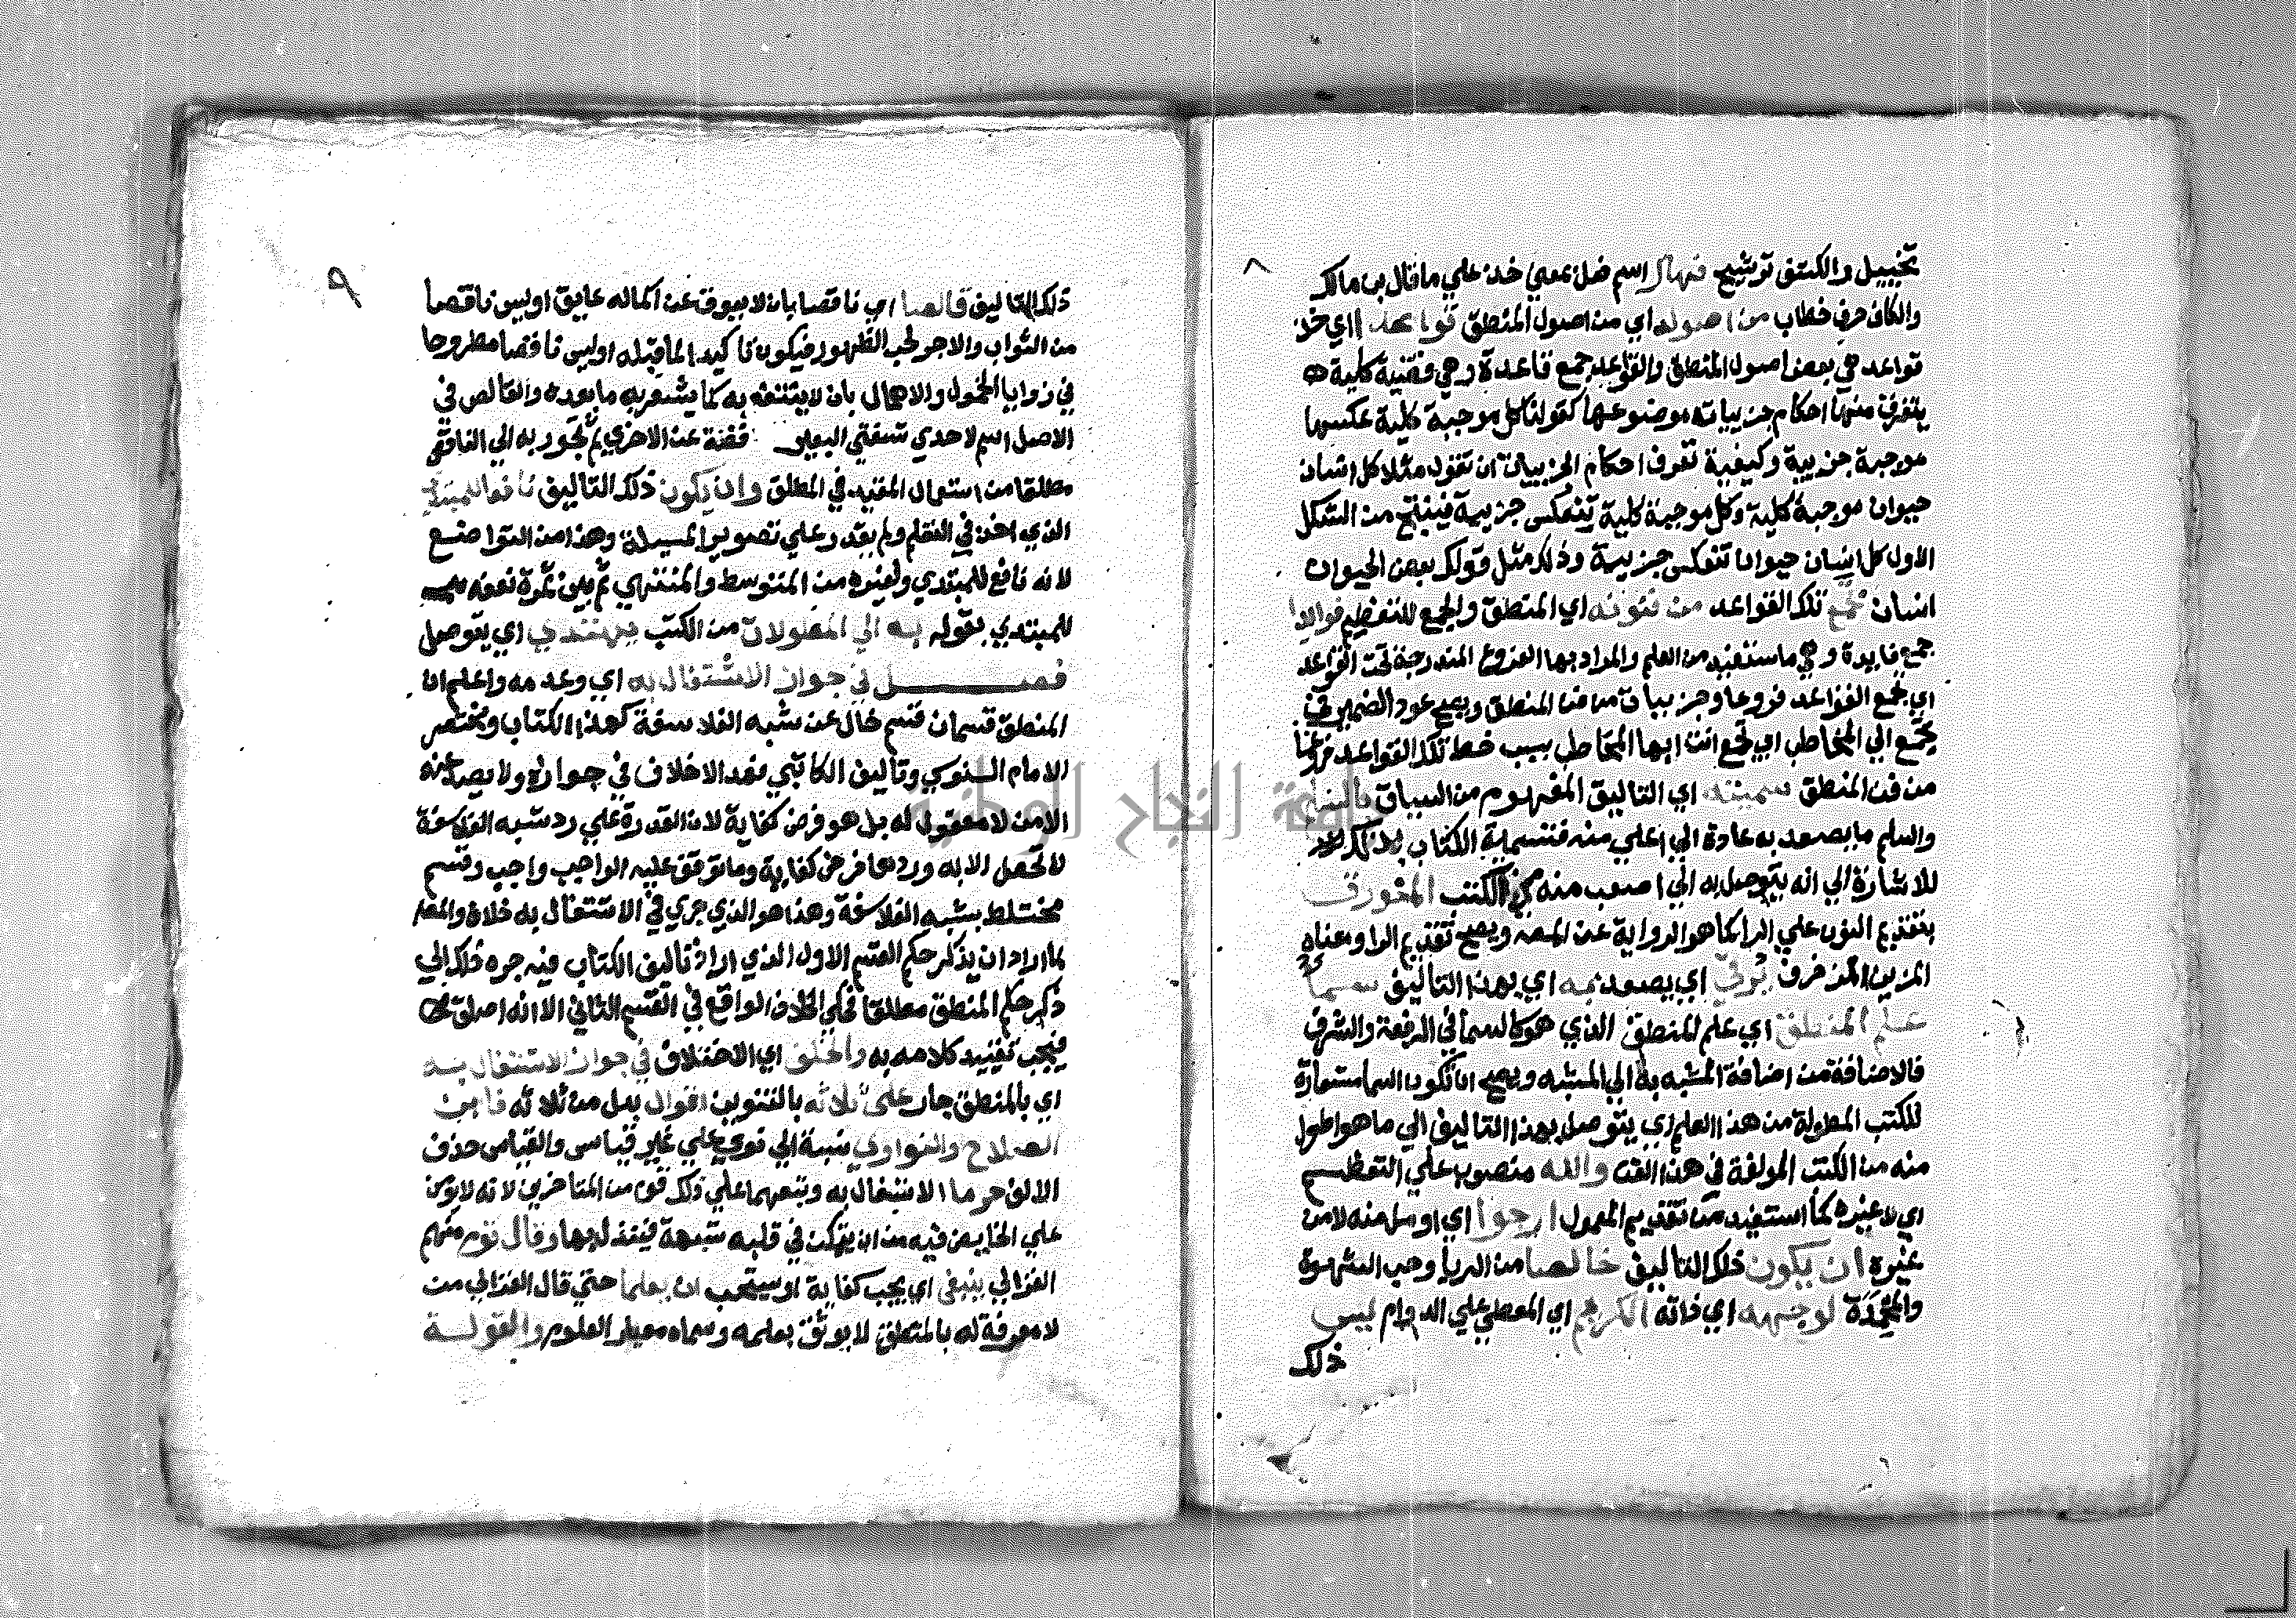 تخييل والكشف ترشيح فهاك اسم فعل بمعني خذ علي ما قال بن مالك
والكاف حرف خطاب من اصوله اي من اصول المنطق قواعدا اي خذ
قواعد هي بعض اصول المنطق والقواعد جمع قاعدة وهي قضية كلية
يتعرف منها احكام جزييات موضوعها كقولنا كل موجبة كلية عكسها
موجبة جزيية وكيفية تعرف احكام الجزييات ان تقول مثلا كل انسان
حيوان موجبة كلية وكل موجبة كلية تنعكس جزيية فينتج من الشكل
الاول كل انسان حيوان تنعكس جزيية وذلك مثل قولك بعض الحيوان
انسان تجمع تلك القواعد من فنونه اي المنطق والجمع للتعظيم فوايدا
جمع فايدة وهي ما ستفيد من العلم والمراد بها الفروع المندرجة تحت القواعد
اي تجمع القواعد فروعا وجزييات من فن المنطق ويصح عود الضمير في
تجمع الي المخاطب اي تجمع انت ايها المخاطب بسبب ضبط تلك القواعد فروعا
من فن المنطق سميته اي التاليف المفهوم من السياق بالسلم
والسلم ما يصعد به عادة الي اعلي منه فتسمية الكتاب بذلك
للاشارة الي انه يتوصل به الي اصعب منه من الكتب المنورق
بتقديم النون علي الرا كما هو الرواية عن المص ويصح تقديم الرا ومعناه
المزين المزخرف يرقي اي يصعد به اي بهذا التاليف سما
علم المنطق اي علم المنطق الذي هو كالسما في الرفعة والشرف
فالاضافة من اضافة المشبه به الي المشبه ويصح ان تكون السما مستعارة
للكتب المطولة من هذا العلم اي يتوصل بهذا التاليف الي ما هو اطول
منه من الكتب المولفة في هذا الفن والله منصوب علي التعظيم
اي لا غيره كما استفيد من تقديم المعمول ارجوا اي اومل منه لا من
غيره ان يكون ذلك التاليف خالصا من الريا وحب الشهوة
والمحمدة لوجهه اي ذاته الكريم اي المعطي علي الدوام ليس
ذلك
٨
٩
ذلك التاليف قالصا اي ناقصا بان لا يعوق عن اكماله عايق او ليس ناقصا
من الثواب والاجر لحب الظهور فيكون تاكيدا لما قبله او ليس ناقصا مطروحا
في زوايا الخمول والاهمال بان لا ينتفع به كما يشعر به ما بعده والقالص في
الاصل اسم لاحدي شفتي البعير فضة عن الاخري ثم تجوز به الي الناقص
مطلقا من استعمال المقيد في المطلق وان يكون ذلك التاليف نافعا للمبتدي
الذي اخذ في التعلم ولم يقدر علي تصوير المسيلة وهذا من التواضع
لانه نافع للمبتدي ولغيره من المتوسط والمنتهي ثم بين ثمرة نفعه
للمبتدي بقوله به الي المطولات من الكتب يهتدي اي يتوصل
فصل في جواز الاشتغال به اي وعدمه واعلم ان
المنطق قسمان قسم خال عن شبه الفلاسفة كهذا الكتاب ومختصر
الامام السنوسي وتاليف الكاتبي فهذا لا خلاف في جوازه ولا يصد عنه
الا من لا معقول له بل هو فرض كفاية لان القدرة علي رد شبه الفلاسفة
لا تحصل الا به وردها فرض كفاية وما توقف عليه الواجب واجب وقسم
مختلط بشبه الفلاسفة وهذا هو الذي جري في الاشتغال به خلاف والمص
لما اراد ان يذكر حكم القسم الاول الذي اراد تاليف الكتاب فيه جره ذلك الي
ذكر حكم المنطق مطلقا فحكي الخلاف الواقع في القسم الثاني الا انه اطلق
فيجب تقييد كلامه به والخلف اي الاختلاف في جواز الاشتغال به
اي بالمنطق جار علي ثلاثة بالتنوين اقوال بدل من ثلاثة فابن
الصلاح والنواوي نسبة الي نوي علي غير قياس والقياس حذف
الالف حرما الاشتغال به وتبعهما علي ذلك قوم من المتاخرين لانه لا يومن
علي الخايض فيه من ان يتمكن في قلبه شبهة فيتذلل بها وقال قوم منهم
الغزالي ينبغي اي يجب كفاية او يستحب ان يعلما حتي قال الغزالي من
لا معرفة له بالمنطق لا يوثق بعلمه وسماه معيار العلوم والقولة
جامعة النجاح الوطنية